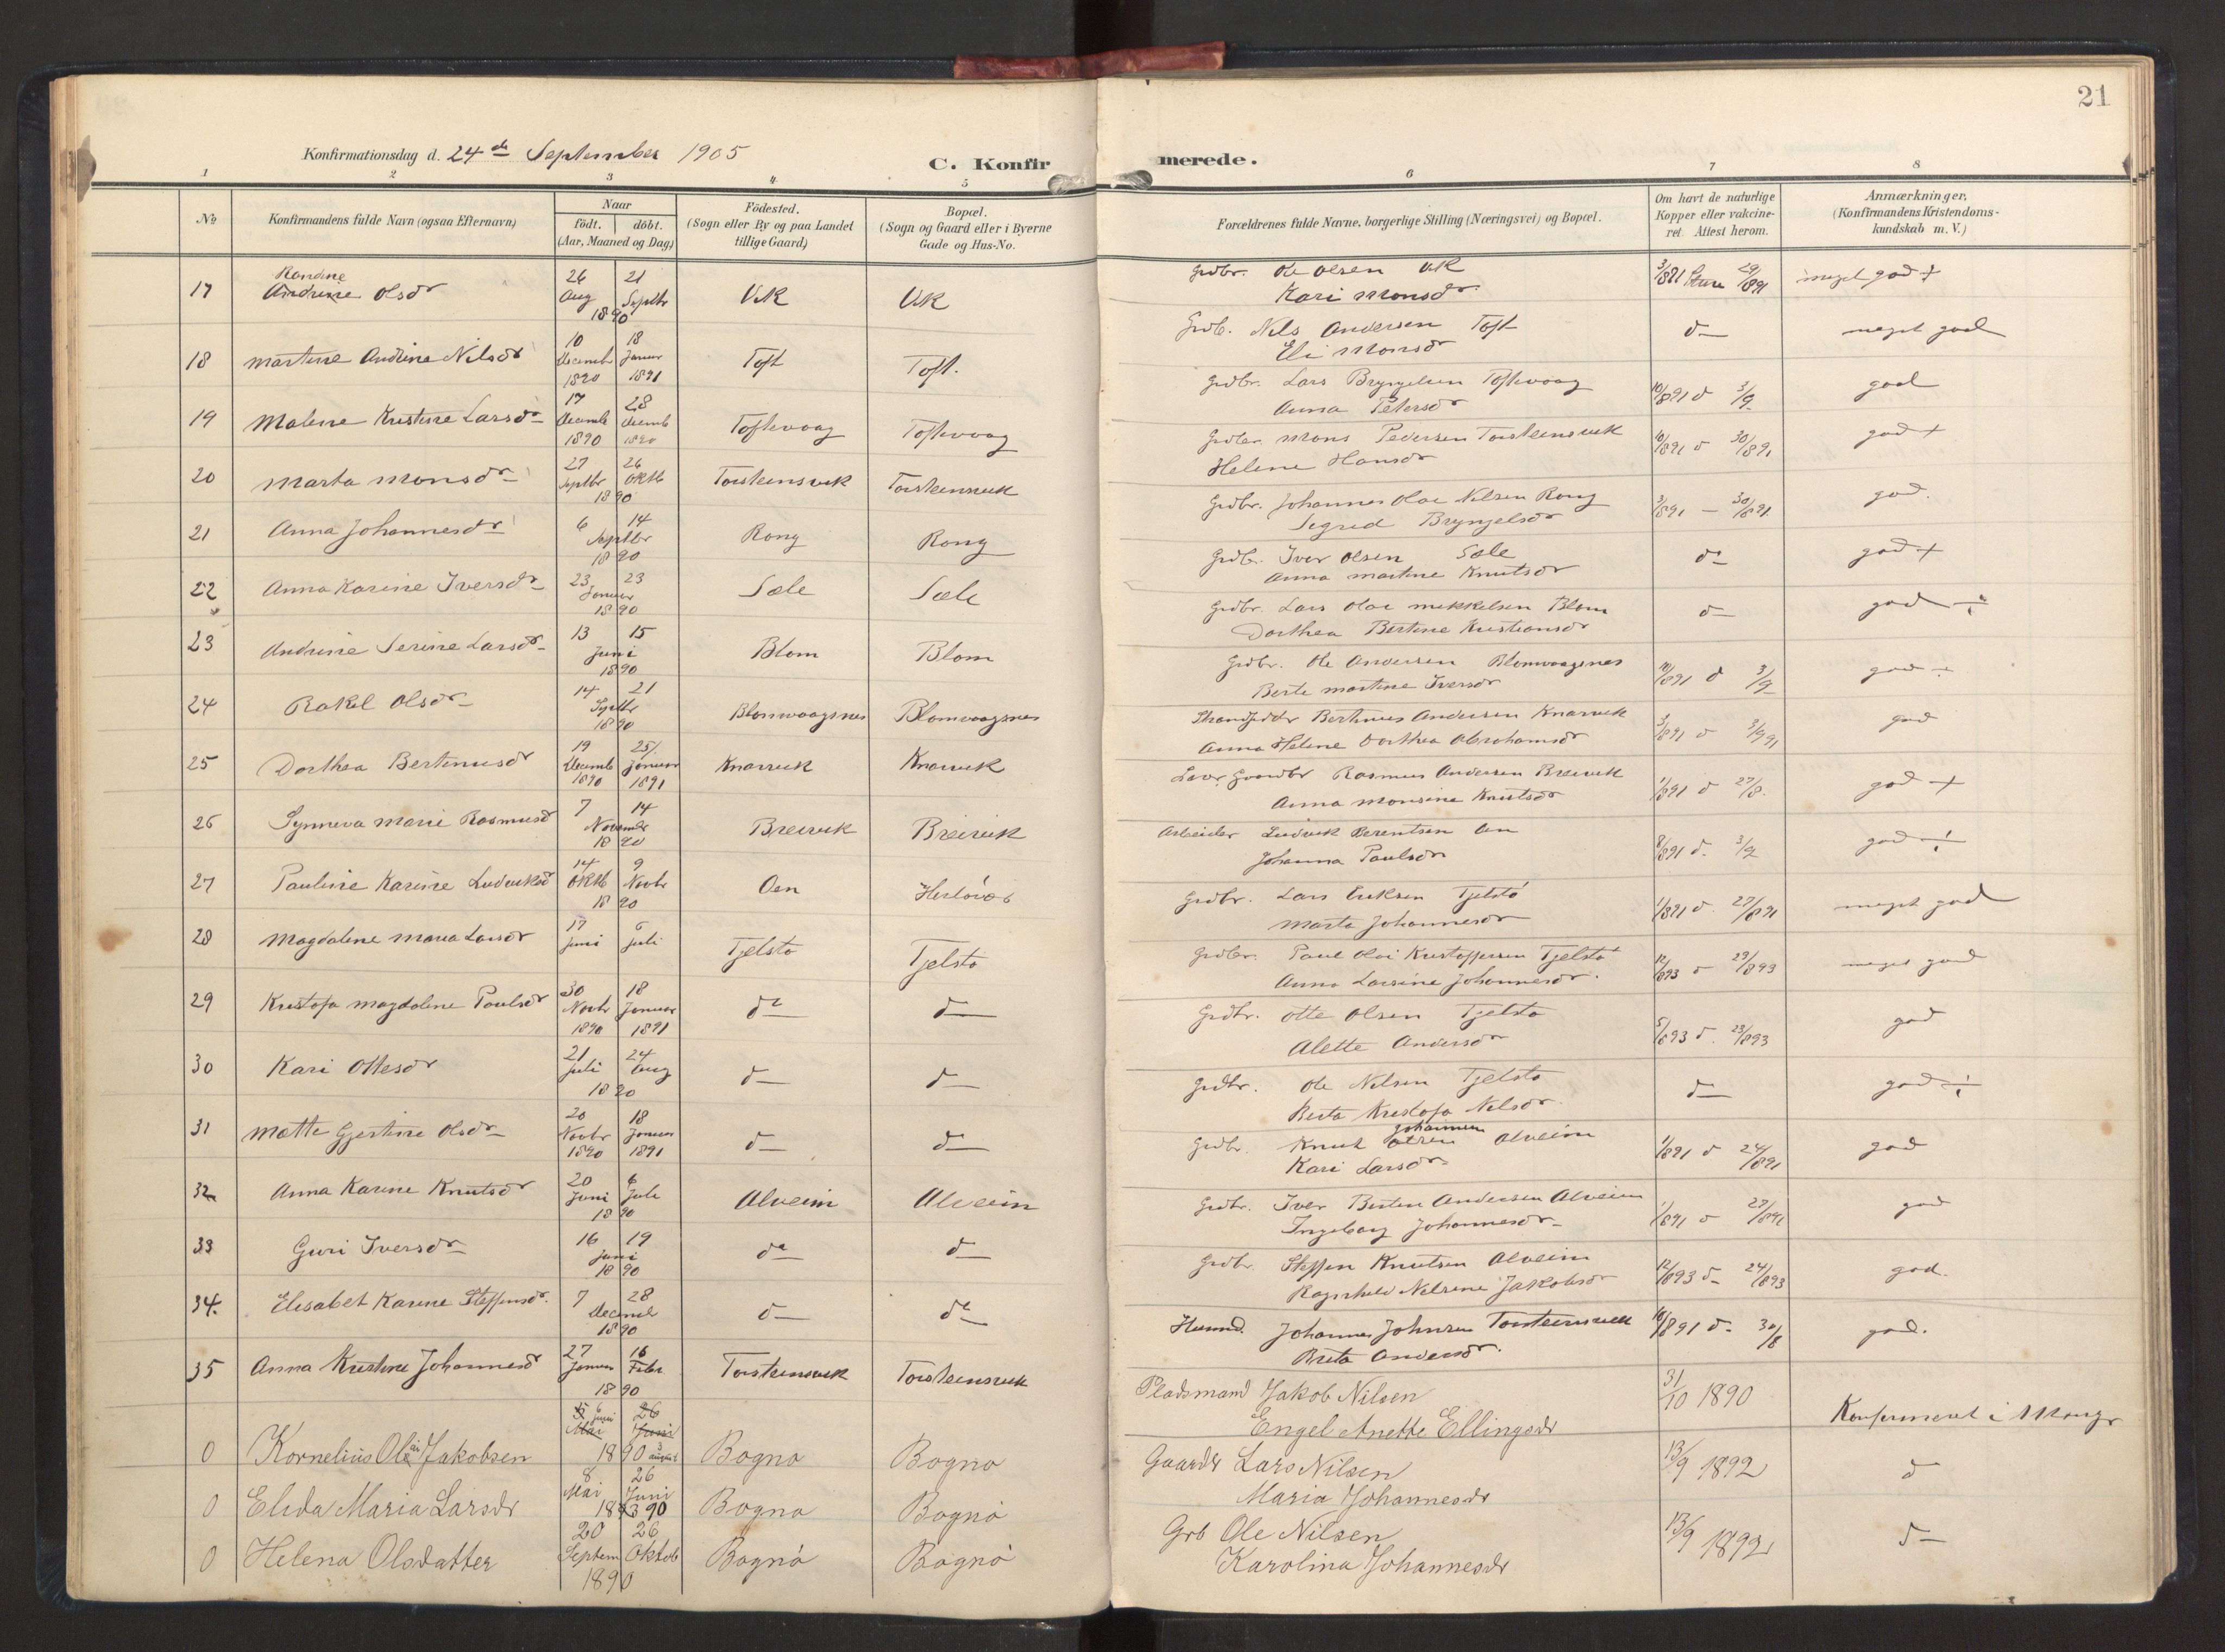 21
Konfirmationsdag d. 24de September 1905
C. Konfir
merede.
1 2 3 4 5 6 7 8
No
Konfirmandens fulde Navn (ogsaa Efternavn)
Naar
födt. döbt.
(Aar, Maaned og Dag)
Födested.
(Sogn eller By og paa Landet
tillige Gaard)
Bopæl.
(Sogn og Gaard eller i Byerne
Gade og Hus-No.
Forældrenes fulde Navne, borgerlige Stilling (Næringsvei) og Bopæl.
Om havt de naturlige
Kopper eller vakcine-
ret. Attest herom.
Anmærkninger,
(Konfirmandens Kristendoms-
kundskab m. V.)
17 Randine
Andrine Olsdr 26 Aug 21 Septbr 1890 Vik Vik Grdbr. Ole Olsen Vik
Kari Monsdr 3/891 29/891 meget god +
18 Martine Andrine Nilsdr 10 Decemb 1890 18 Januar 1891 Toft Toft. Grdb. Nils Andersen Toft
Eli Monsdr d— meget god
19 Malene Kristine Larsdr 17 Decemb 1890 28 Decemb 1890 Toftevaag Toftevaag Grdbr. Lars Bryngelsen Toftevaag
Anna Petersdr 10/891 d 3/9 god
20 Marta Monsdr 27 Septbr 26 Oktb 1890 Torsteinsvik Torsteinsvik Grdbr. Mons Pedersen Torsteinsvik
Helene Hansdr 10/891 d 30/891 god +
21 Anna Johannesdr 6 14 Septbr 1890 Rong Rong Grdbr. Johannes Olai Nilsen Rong
Segred Bryngelsdr 3/891 — 30/891 god.
22 Anna Karine Iversdr 23 23 Januar 1890 Sæle Sæle Grdb. Iver Olsen Sæle
Anna Martine Knutsdr d— god +
23 Andrine Serine Larsdr 13 15 Juni 1890 Blom Blom Grdbr. Lars Olai Mikkelsen Blom
Dorthea Bertine Kristiansdr d— god ÷
24 Rakel Olsdr 14 21 Septbr 1890 Blomvaagsnes Blomvaagsnes Grdbr. Ole Andersen Blomvaagsnes
Berte Martine Iversdr 10/891 d 3/9 god ÷
25 Dorthea Bertinusdr 19 Decemb 1890 25/ Januar 1891 Knarvik Knarvik Strandsidder Bertinus Andersen Knarvik
Anna Helene Dorthea Abrahamsdr 3/891 d 3/991 god
26 Synneva Marie Rasmusd 7 14 Novembr 1890 Breivik Breivik Gaardbr Rasmus Andersen Breivik
Anna Monsine Knutsdr 1/891 d 27/8. god +
27 Pauline Karine Ludviksd 14 Oktb 9 Novbr 1890 Oen Herløvær Arbeider Ludvik Berentsen Oen
Johanna Paulsdr 8/891 d. 3/9 god ÷
28 Magdalene Maria Larsdr 17 Juni 6 Juli Tjelstø Tjelstø Grdbr. Lars Eriksen Tjelstø
Marta Johannesdr 1/891 d. 27/891 meget god
29 Kristofa Magdalene Paulsdr 30 Novbr 1890 18 Januar 1891 do— d— Grdbr. Paul Olai Kristoffersen Tjelstø
Anna Larsine Johannesdr. 12/893 d 29/893 meget god
30 Kari Ottesdr 21 Juli 24 Aug 1890 d— d— Grdbr. Otte Olsen Tjelstø
Alette Andersdr 5/893 d. 23/893 god
31 Mætte Gjertine Olsdr 20 Novbr 1890 18 Januar 1891 d— d— Grdbr. Ole Nilsen Tjelstø
Berta Kristofa Nilsdr. d— god ÷
32 Anna Karine Knutsdr 20 Juni 6 Juli 1890 Alveim Alveim Grdbr. Knut Johannes Olsen Alveim
Kari Larsdr 1/891 d 24/891 god
33 Guri Iversdr 16 19 Juni 1890 do— d— Grdbr. Iver Andersen Alveim
Ingeborg Johannesdr 1/891 d 27/891 god
34. Elisabet Karine Steffensdr. 7 28 Decemb 1890 d— do— Grdbr. Steffen Knutsen Alveim
Ragnhild Nilsine Jakobsdr 12/893 d— 24/893 god.
35 Anna Kristine Johannesd 27 Januar 16 Febr 1890 Torsteinsvik Torsteinsvik Husmd. Johannes Johnsen Torsteinsvik
Brita Andersdr. 10/891 d— 30/8 god.
0 Kornelius Olai Jakobsen 5 Mai 6 Juni 26 Juni 3 august 1890 Bogno Bogno Pladsmand Jakob Nilsen
Engel Anette Ellingsdr 31/10 1890 Konfirmeret i Manger
0 Elida Maria Larsdr 8 Mai 26 Juni 1890 Bogno Bognø Gaardbr Lars Nilsen
Maria Johannesdr 13/9 1892 d
0 Helena Olsdatter 20 Septem 26 Oktob 1890 Bognø Bognø Grb Ole Nilsen
Karolina Johannesdr 13/9 1892 d—